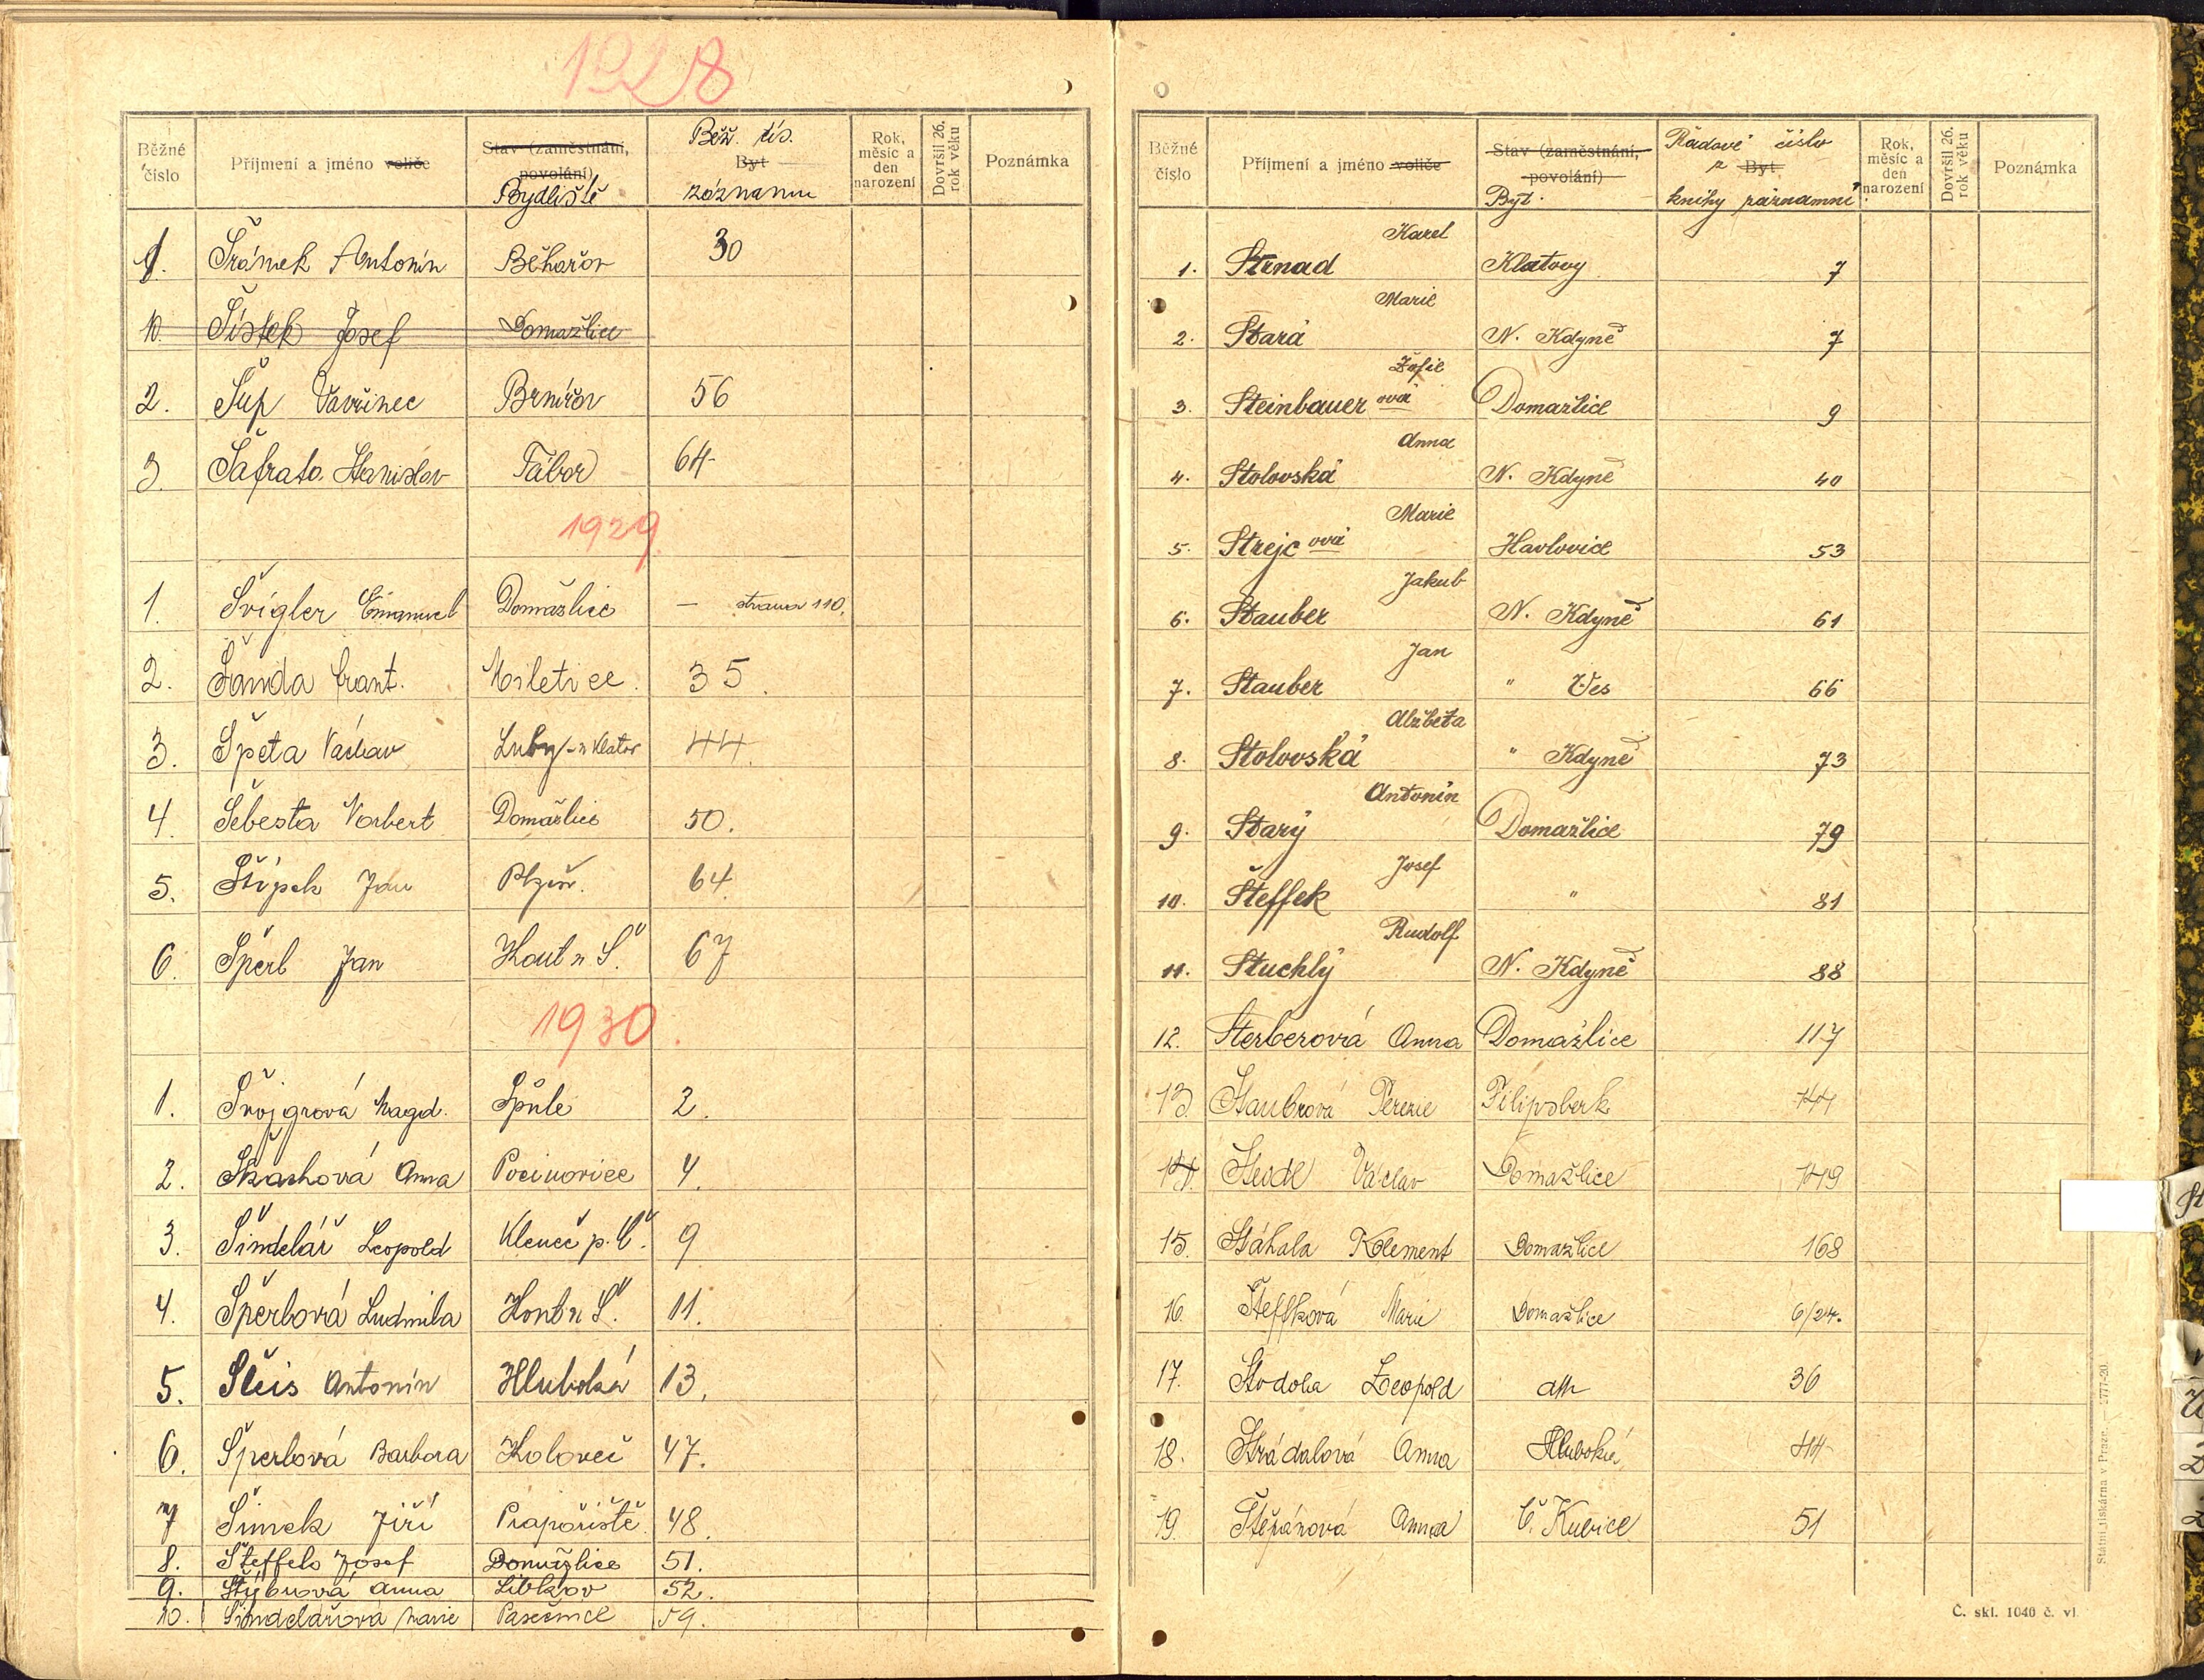 1928
Běžné číslo Příjmení a jméno voliče Stav (zaměstnání, povolání) Bydliště Běž. čís. Byt záznamu Rok, měsíc a den narození Dovršil 26. rok věku Poznámka
1. Šrámek Antonín Běhařov 30
10. Šístek Josef Domažlice
2. Šup Vavřinec Brnířov 56
3. Šafrata Stanislav Tábor 64
1929
1. Švígler Emanuel Domažlice — strana 110.
2. Šanda Frant. Miletice 35.
3. Špeta Václav Luby-u Klatov 44.
4. Šebesta Norbert Domažlice 50.
5. Štípek Jan Plzeň. 64
6. Šperl Jan Kout n Š. 67
1930.
1. Švojgrová Magd. Spůle 2.
2. Anna Pocinovice 4.
3. Šindelář Leopold Klenče p. Č. 9
4. Šperlová Ludmila Kout n Š. 11.
5. Antonín Hluboká 13.
6. Šperlová Barbora Koloveč 47.
7 Šimek Jiří Prapořiště 48.
8. Šteffek Josef Domažlice 51.
9. Anna Libkov 52.
10. Šindelářová Marie Pasečnice 59.
Běžné číslo Příjmení a jméno voliče Stav (zaměstnání, povolání) Byt. Řadové číslo z Byt knihy záznamní. Rok, měsíc a den narození Dovršil 26. rok věku Poznámka
Karel
1. Strnad Klatovy 7
Marie
2. Stará N. Kdyně 7
Žofie
3. Steinbauer ová Domažlice 9
Anna
4. Stolovská N. Kdyně 40
Marie
5. Strejc ová Havlovice 53
Jakub
6. Stauber N. Kdyně 61
Jan
7. Stauber " Ves 66
Alžběta
8. Stolovská " Kdyně 73
Antonín
9. Starý Domažlice 79
Josef
10. Šteffek " 81
Rudolf
11. Stuchlý N. Kdyně 88
12. Sterberová Anna Domažlice 117
13. Staubrová Terezie Filipsberk 144
14. Steidl Václav Domažlice 149
15. Stáhala Klement Domažlice 168
16. Šteffková Marie Domažlice 6/24.
17. Stodola Leopold 36
18. Strádalová Anna Hluboká 44
19. Štěpánová Anna Č. Kubice 51
Státní tiskárna v Praze. — 777-20.
Č. skl. 1040 č. vl.
St